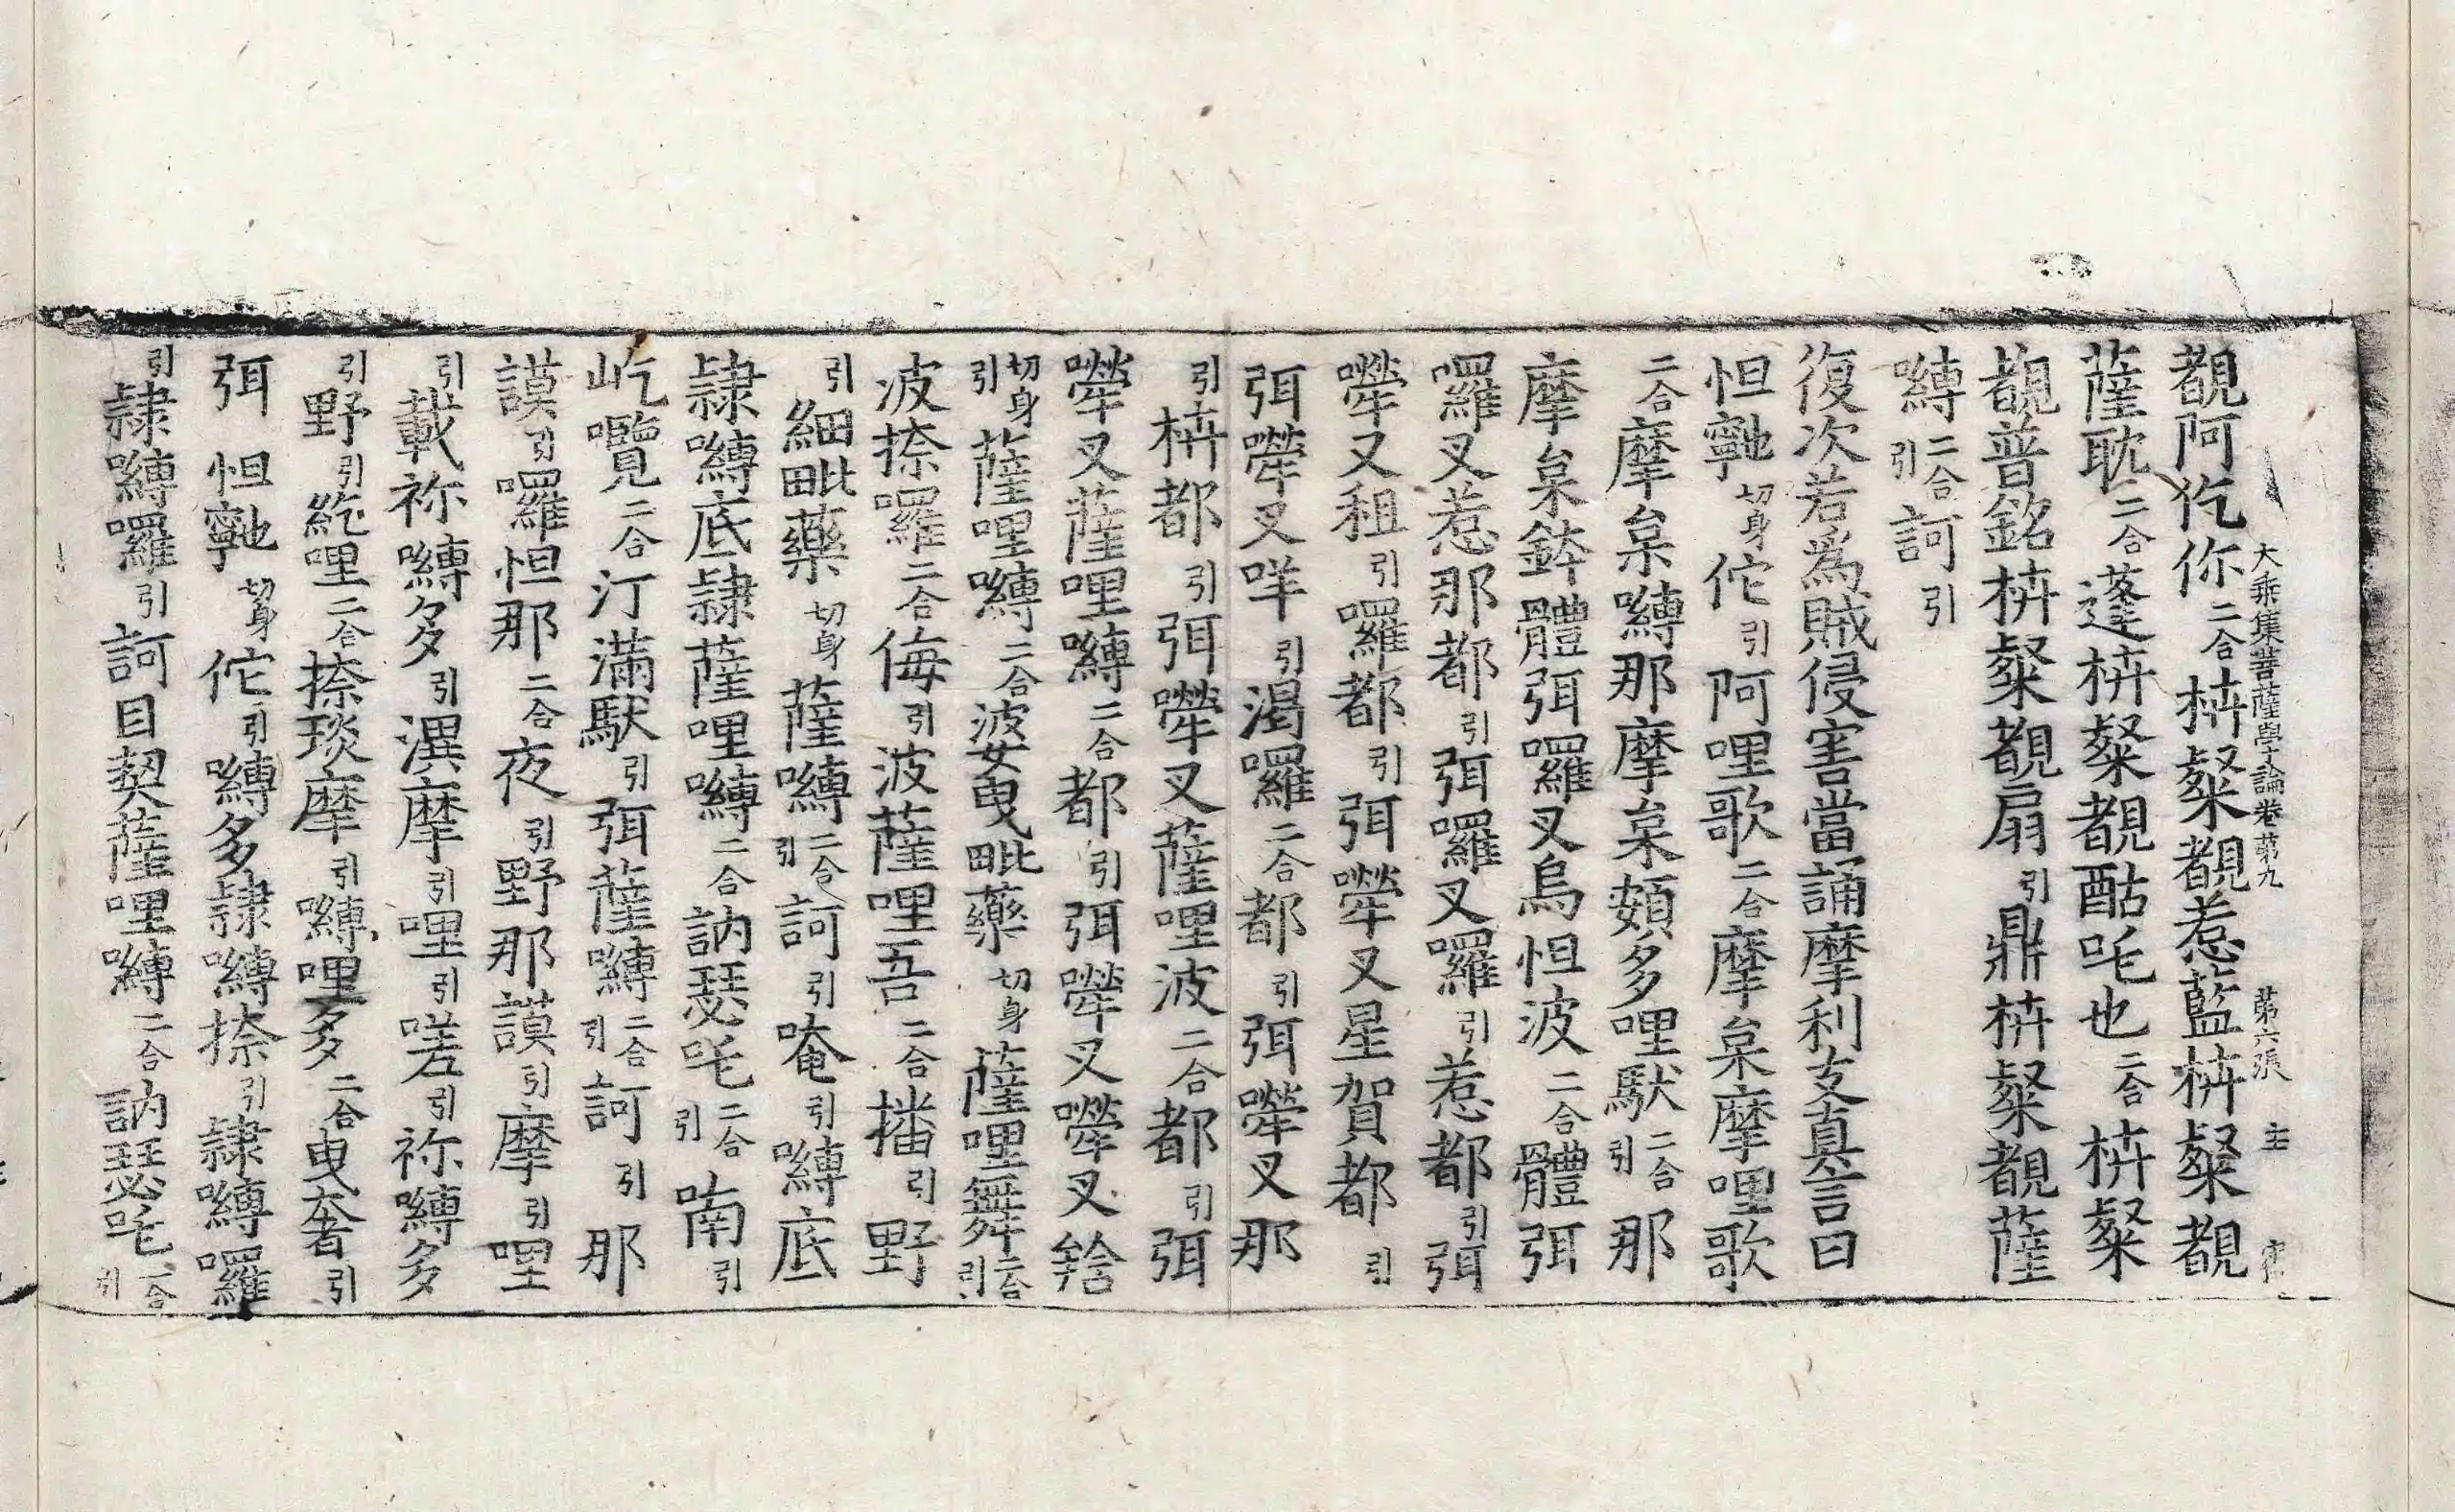 大乘集菩薩學論卷第九　第六張　主
覩阿仡你二合枿粲覩惹藍枿粲覩
薩耽二合蓬枿粲覩酤吒也二合枿粲
覩普銘枿粲覩扇引鼎枿粲覩薩
嚩二合引訶引
復次若爲賊侵害當誦摩利支真言曰
怛寧也切身佗引阿哩歌二合摩㭐摩哩歌
二合摩㭐嚩那摩㭐頞多哩馱二合引那
摩㭐鉢體弭囉叉烏怛波二合體弭
囉叉惹那都引弭囉叉囉引惹都引弭
囉叉租引囉都引弭囉叉星賀都引
弭囉叉咩引渴囉二合都引弭囉叉那
引枿都引弭囉叉薩哩波二合都引弭
囉叉薩哩嚩二合都引弭囉叉囉叉
切身引薩哩嚩二合婆曳毗藥切身薩哩舞二合引
波捺囉二合侮引波薩哩吾二合播引野
引細毗藥切身薩嚩二合引訶引唵引嚩底
隸嚩底隸薩哩嚩二合訥瑟吒二合引喃引
屹囕二合汀滿馱引弭薩嚩二合引訶引那
謨引囉怛那二合夜引野那謨引摩引哩
引載祢嚩多引潩摩引哩引嗟引祢嚩多
引野引紇哩二合捺琰摩引嚩哩多二合曳奢引
弭怛寧也切身佗引嚩多隸嚩捺引隸嚩囉
引隸嚩囉引訶目契薩哩嚩二合訥瑟吒二合引